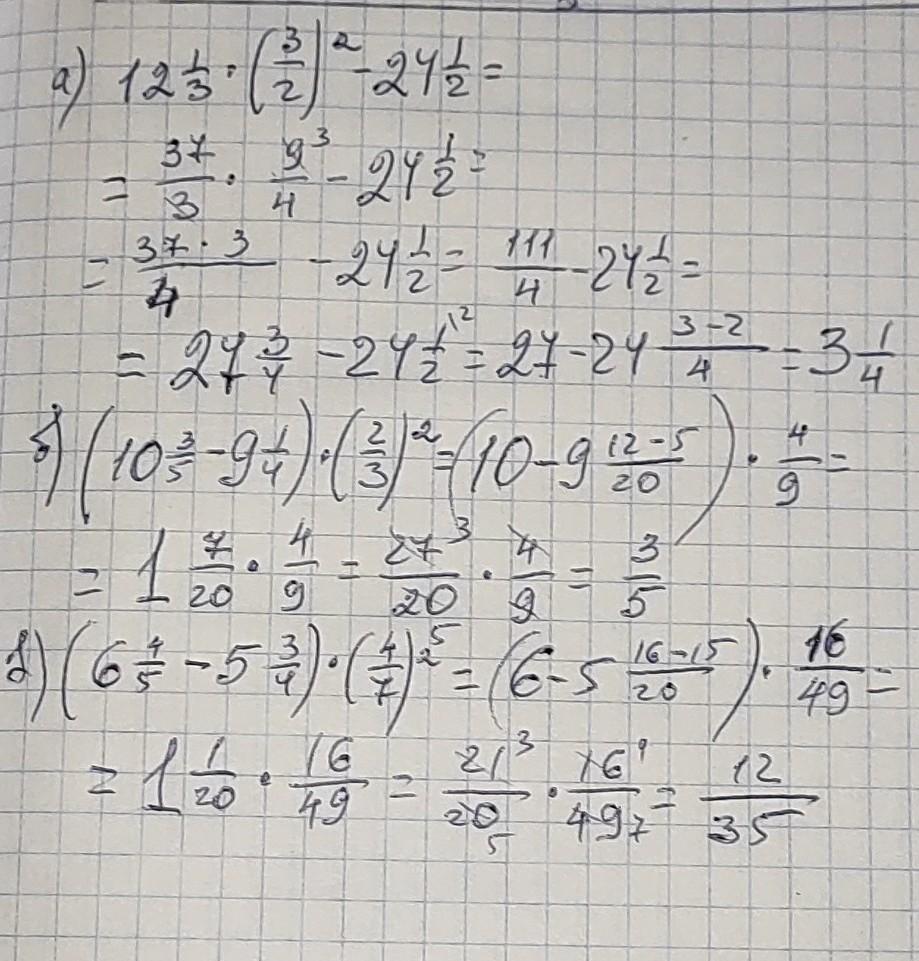 а) 12 1/3 · (3/2)² - 24 1/2 =
= 37/3 · 9³/4 - 24 1/2 =
= 37 · 3/4 - 24 1/2 = 111/4 - 24 1/2 =
= 27 3/4 - 24 1/2\² = 27 - 24 3-2/4 = 3 1/4
б) (10 3/5 - 9 1/4) · (2/3)² = (10 - 9 12-5/20) · 4/9 =
= 1 7/20 · 4/9 = 27³/20₅ · 4/9 = 3/5
в) (6 4/5 - 5 3/4) · (4/7)² = (6 - 5 16-15/20) · 16/49 =
= 1 1/20 · 16/49 = 21³/20₅ · 16⁴/49₇ = 12/35